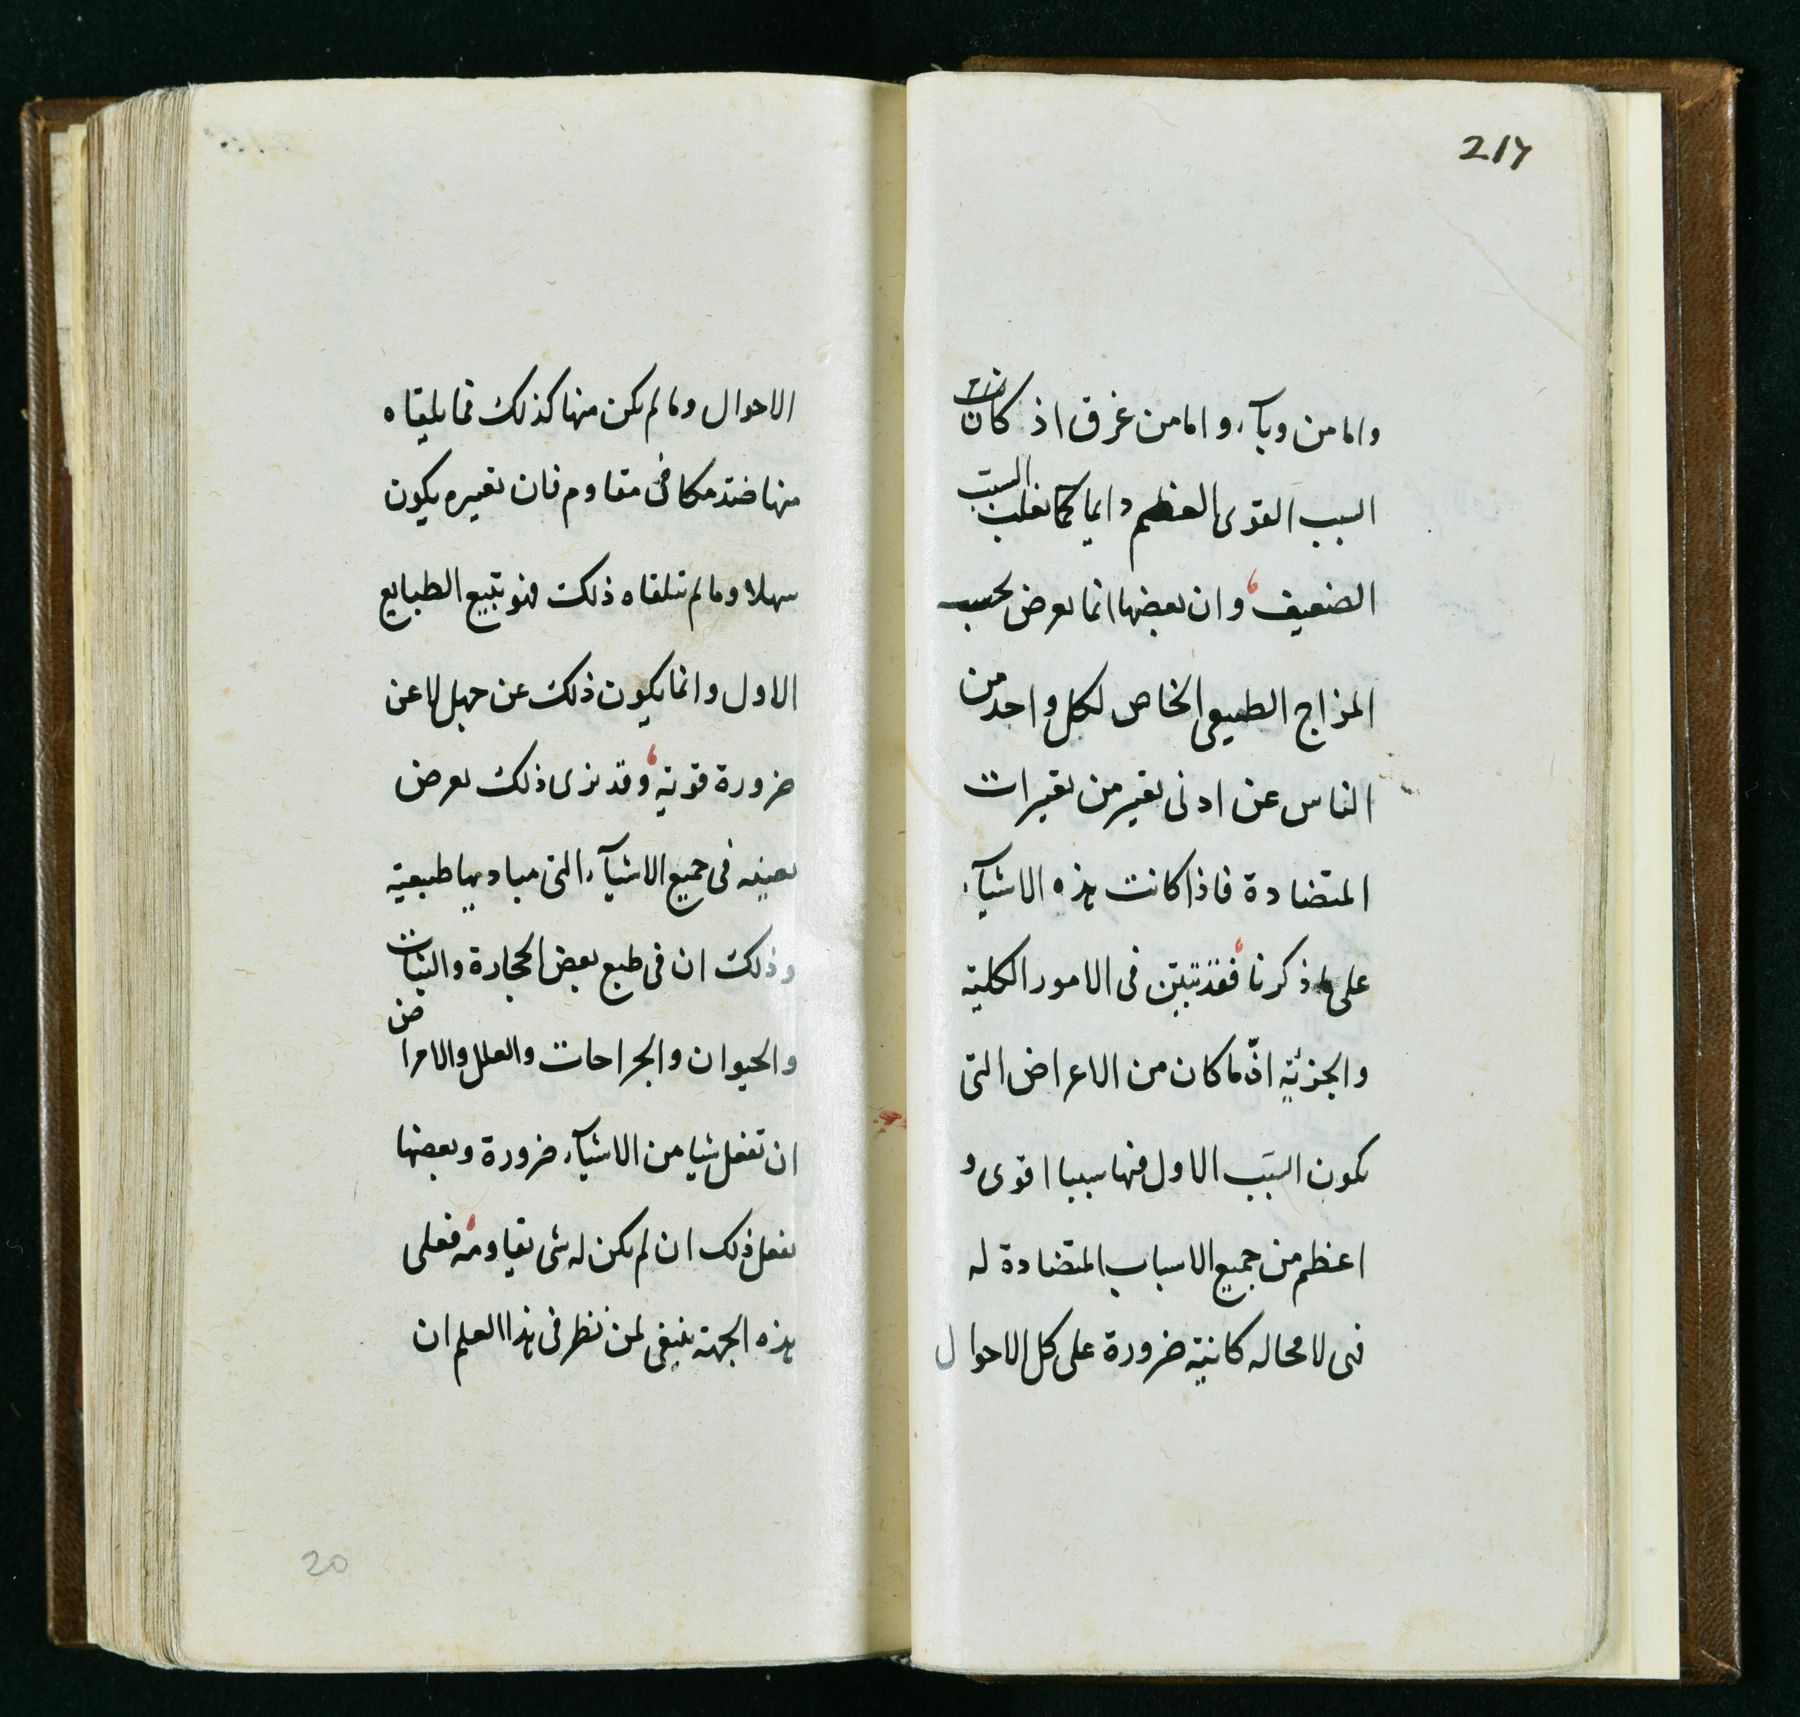 217
واما من وبآء واما من غرق اذ كانت
السبب القوى العظم دايما كما يغلب السبب
الضعيف وان بعضها انما يعرض بحسب
المزاج الطبيعى الخاص لكل واحد من
الناس عن ادنى تغير من تغيرات
المتضادة فاذا كانت هذه الاشيآء
على ما ذكرنا فقد تبيّن فى الامور الكلية
والجزئية انّ ما كان من الاعراض التى
يكون السبب الاول فيها سببا اقوى و
اعظم من جميع الاسباب المتضادة له
فهى لا محاله كاينة ضرورة على كل الاحوال
الاحوال وما لم يكن منها كذلك فما يلقاه
منها ضد مكافى مقاوم فان تغييره يكون
سهلا وما لم تلقاه ذلك فهو تبيع الطبايع
الاول وانما يكون ذلك عن جهل لا عن
ضرورة قوية وقد نرى ذلك يعرض
بعينه فى جميع الاشيآء التى مباديها طبيعية
وذلك ان فى طبع بعض الحجارة والنبات
والحيوان والجراحات والعلل والامراض
ان تفعل شيا من الاشيآء ضرورة وبعضها
يفعل ذلك ان لم يكن له شى يقاومه فعلى
هذه الجهة ينبغى لمن نظر فى هذا العلم ان
20